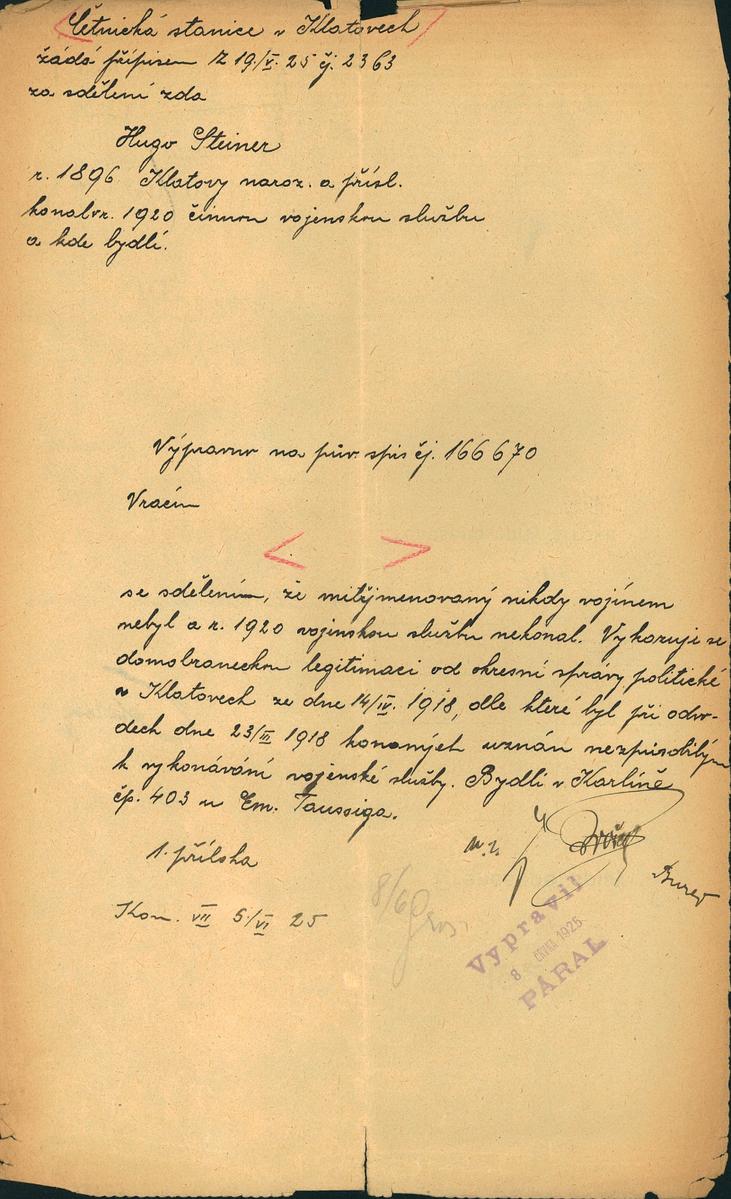 Četnická stanice v Klatovech
žádá přípisem Z 19/V. 25 čj. 2363
za sdělení zda
Hugo Steiner
r. 1896 Klatovy naroz. a přísl.
konal v r. 1920 činnou vojenskou službu
a kde bydlí.
Výpravu na pův. spis čj. 166670
Vracím
se sdělením, že mitějmenovaný nikdy vojínem
nebyl a r. 1920 vojenskou službu nekonal. Vykazuje se
domobraneckou legitimací od okresní správy politické
v Klatovech ze dne 14/IV. 1918, dle které byl při odvo-
dech dne 23/III 1918 konaných uznán nezpůsobilým
k vykonávání vojenské služby. Bydlí v Karlíně
čp. 403 u Em. Taussiga.
1. příloha
Kon. VII 5/VI 25
8/6
Vypravil
8 ČRVNA 1925
PÁRAL